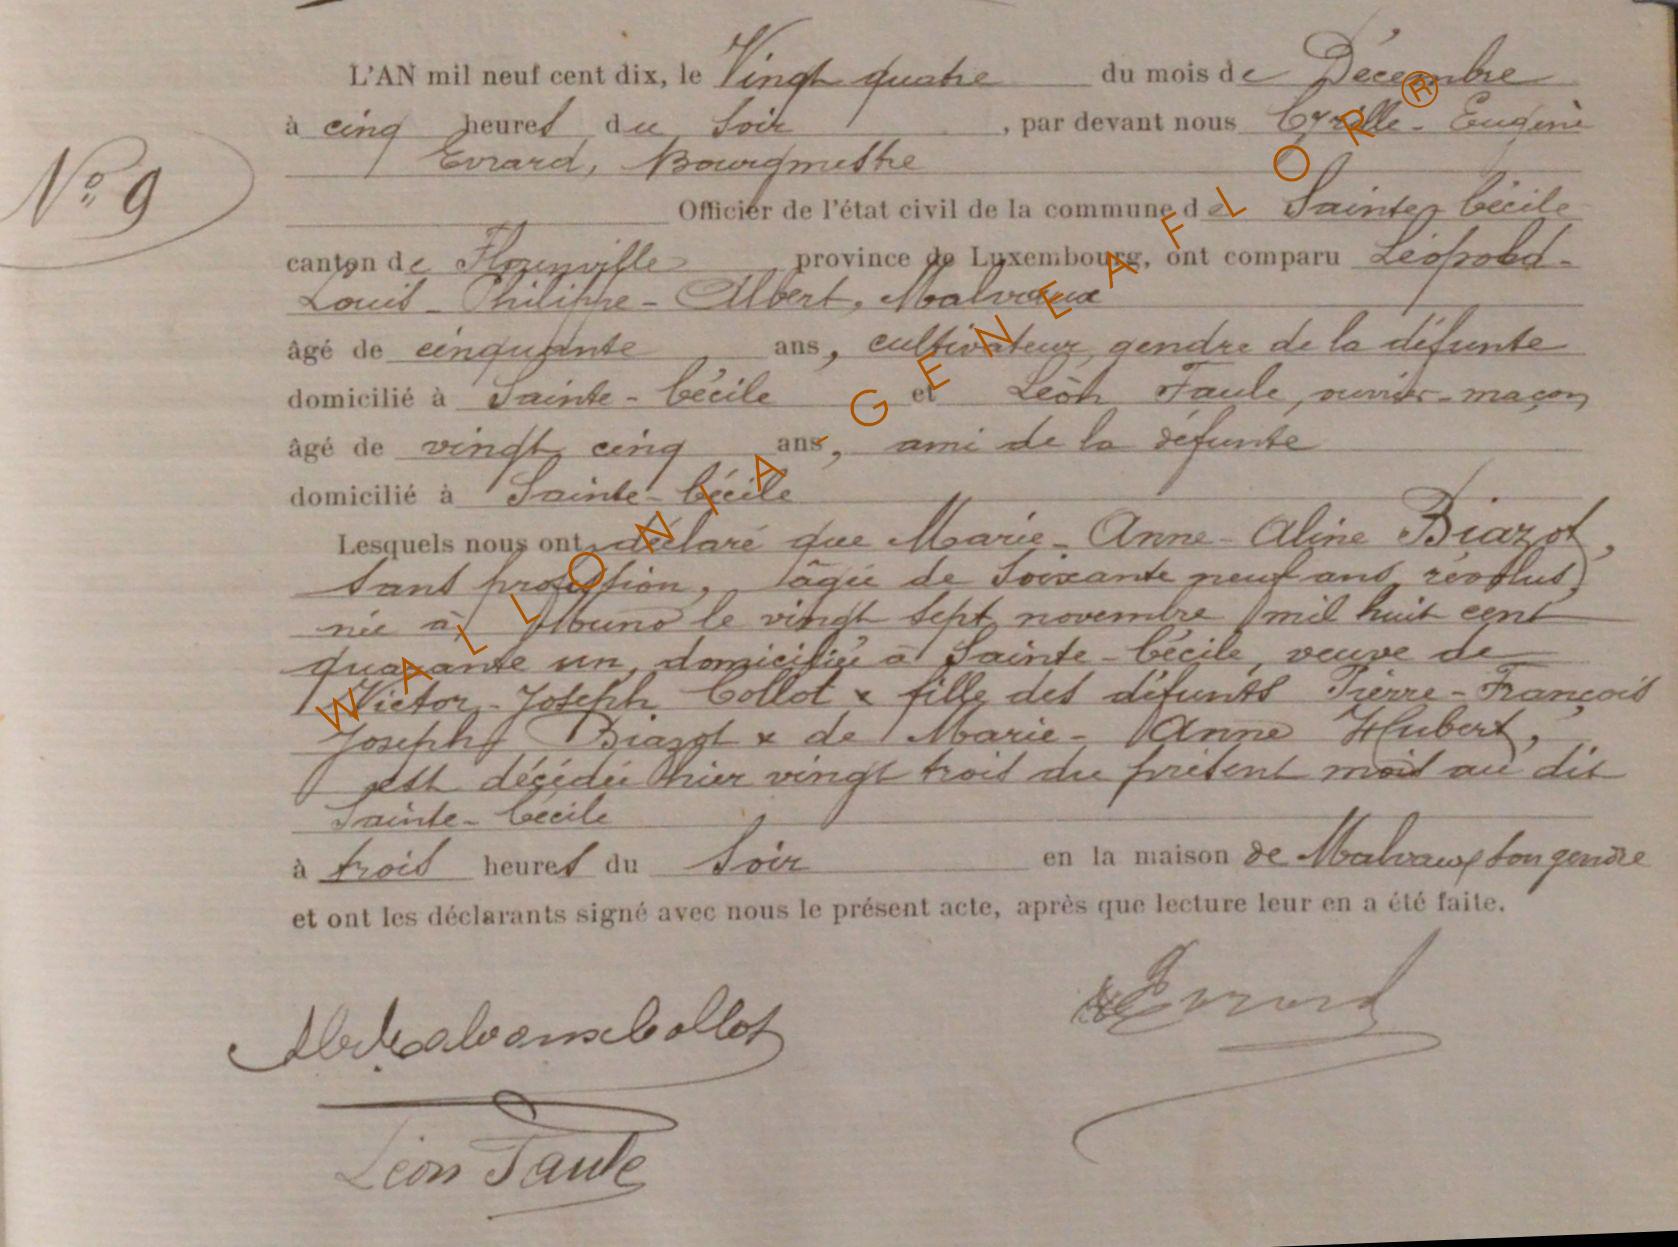 L'AN mil neuf cent dix, le Vingt quatre du mois de Décembre
à cinq heures du soir, par devant nous Cyrille - Eugène
Evrard, Bourgmestre
Officier de l'état civil de la commune de Sainte Cécile
canton de Florenville province de Luxembourg, ont comparu Léopold -
Louis - Philippe - Albert, Malvaux
âgé de cinquante ans, cultivateur, gendre de la défunte
domicilié à Sainte - Cécile et Léon Faule, ouvrier - maçon
âgé de vingt cinq ans, ami de la défunte
domicilié à Sainte - Cécile
Lesquels nous ont déclaré que Marie - Anne - Aline Biazot,
sans profession, âgée de soixante neuf ans révolus,
née à Muno le vingt sept novembre mil huit cent
quarante un, domiciliée à Sainte - Cécile, veuve de
Victor - Joseph Collot x fille des défunts Pierre - François
Joseph Biazot x de Marie - Anne Hubert,
est décédée hier vingt trois du présent mois au dit
Sainte - Cécile
à trois heures du soir en la maison de Malvaux son gendre
et ont les déclarants signé avec nous le présent acte, après que lecture leur en a été faite.
N° 9
Alb Malvaux Collot
Evrard
Léon Faule
WALLONIA - GENEAFLOR®